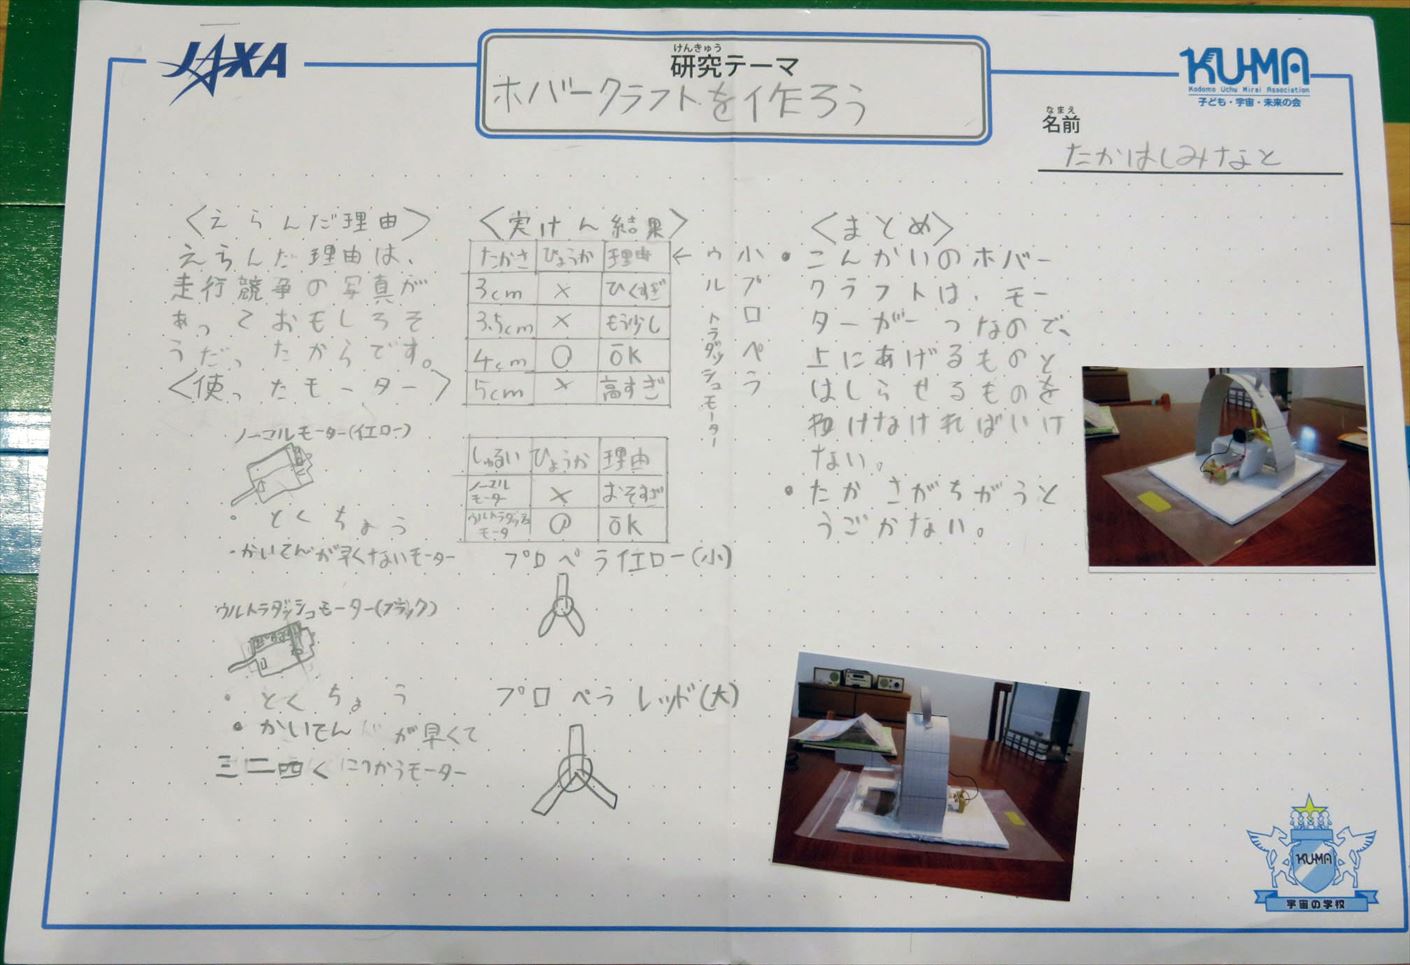 JAXA
けんきゅう
研究テーマ
ホバークラフトを作ろう
KU-MA
Kodomo Uchu Mirai Association
子ども・宇宙・未来の会
なまえ
名前
たかはしみなと
〈えらんだ理由〉
えらんだ理由は、
走行競争の写真が
あっておもしろそ
うだったからです。
〈使ったモーター〉
ノーマルモーター(イエロー)
・とくちょう
・かいてんが早くないモーター
ウルトラダッシュモーター(ブラック)
・とくちょう
・かいてんが早くて
三二四くにつかうモーター
〈実けん結果〉
たかさ ひょうか 理由
3cm × ひくすぎ
3.5cm × もう少し
4cm ○ OK
5cm × 高すぎ
← 小プロペラ
ウルトラダッシュモーター
しゅるい ひょうか 理由
ノーマルモーター × おそすぎ
ウルトラダッシュモータ ○ OK
プロペライエロー(小)
プロペラレッド(大)
〈まとめ〉
・こんかいのホバー
クラフトは、モー
ターが一つなので、
上にあげるものと
はしらせるものを
わけなければいけ
ない。
・たかさがちがうと
うごかない。
KU-MA
宇宙の学校